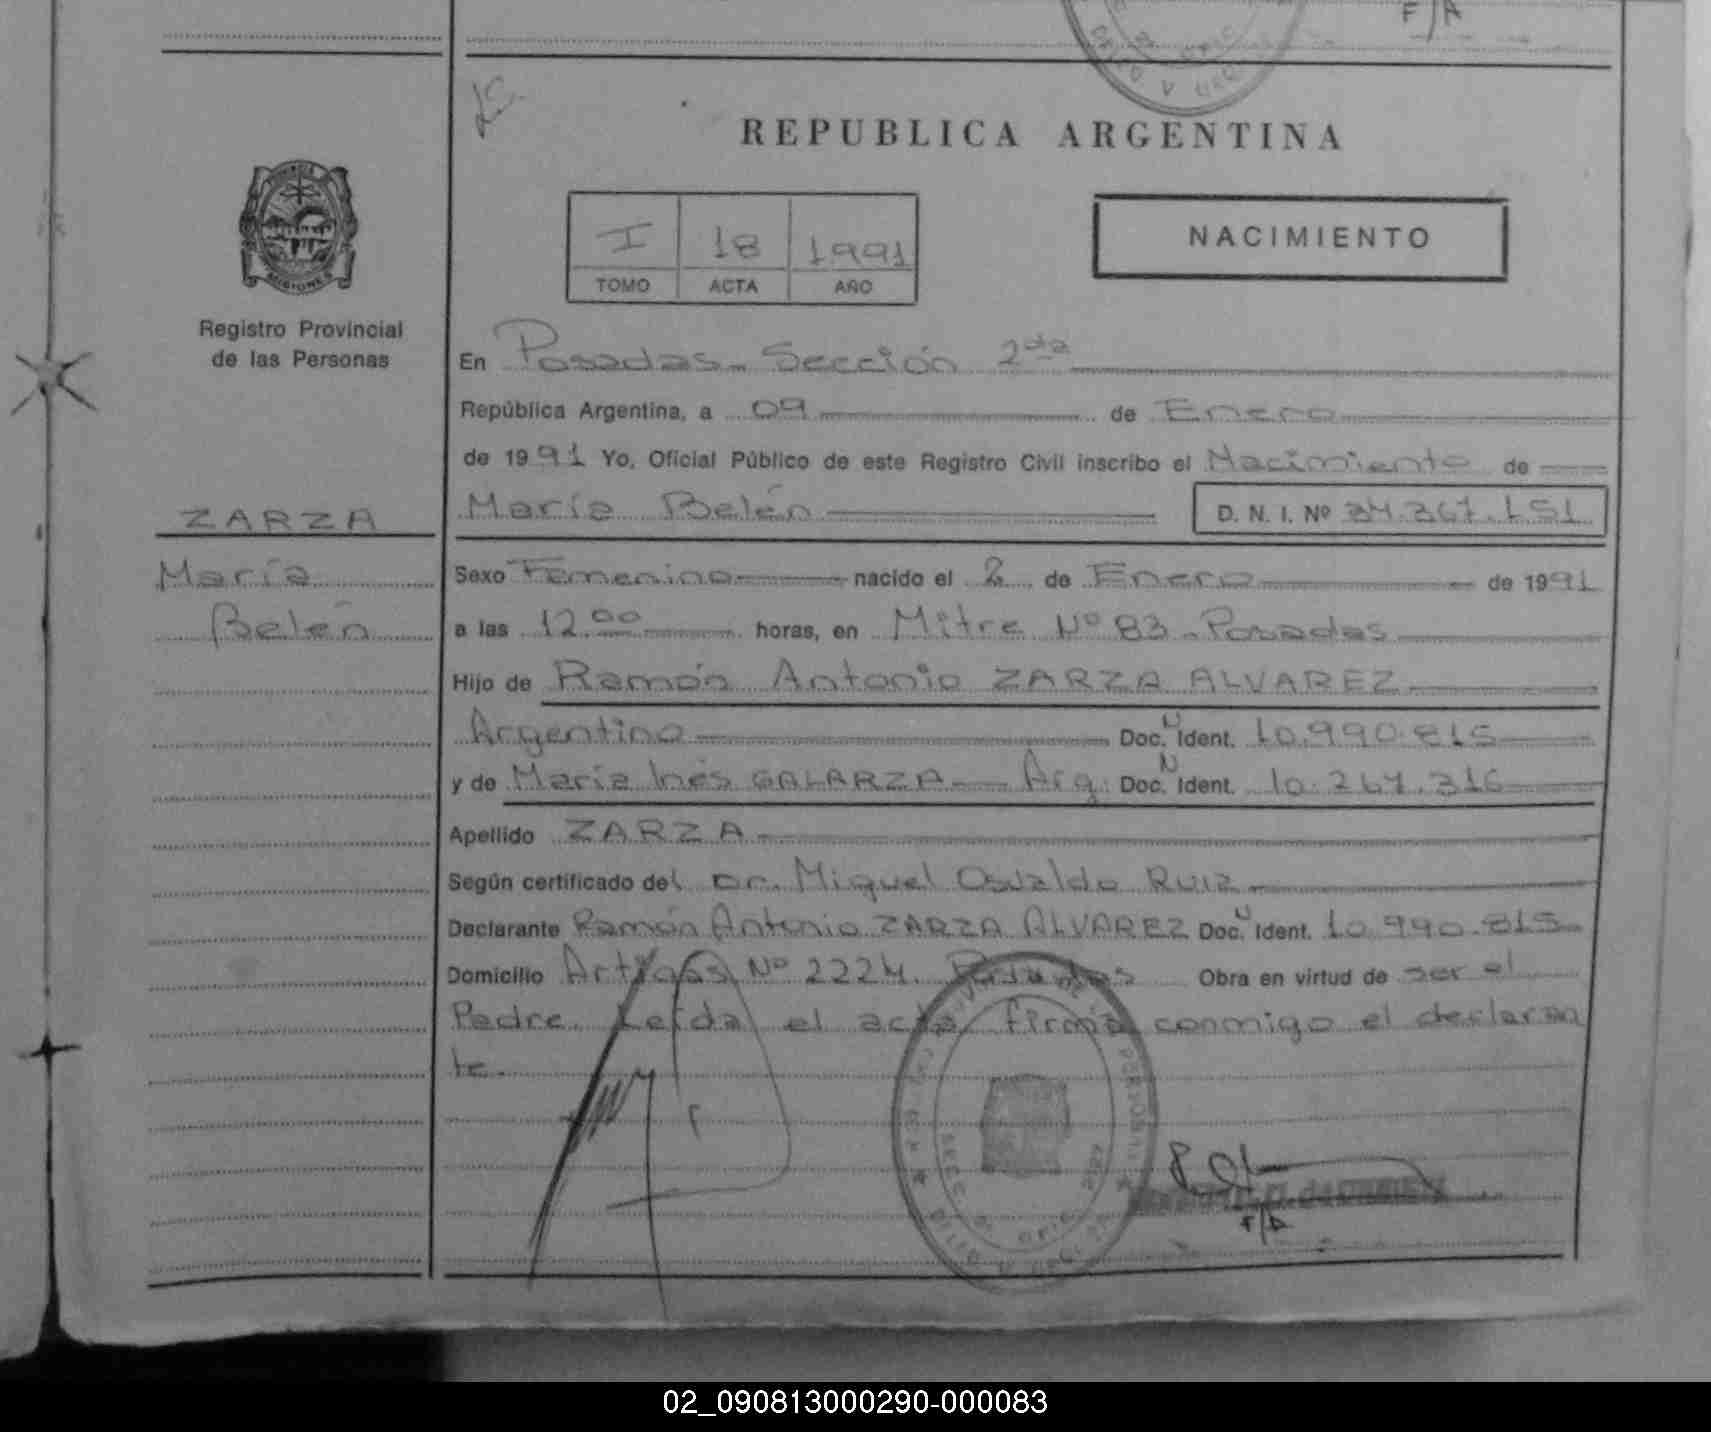 F/A
REPUBLICA ARGENTINA
I 18 1991
TOMO ACTA AÑO
NACIMIENTO
Registro Provincial
de las Personas
ZARZA
María
Belén
En Posadas - Sección 2da
República Argentina, a 09 de Enero
de 1991 Yo, Oficial Público de este Registro Civil inscribo el Nacimiento de
María Belén D. N. I. Nº 34.367.151
Sexo Femenino nacido el 2 de Enero de 1991
a las 12.00 horas, en Mitre Nº 83 - Posadas
Hijo de Ramón Antonio ZARZA ALVAREZ
Argentino Doc. N Ident. 10.990.815
y de María Inés GALARZA Arg. Doc. N Ident. 10.267.316
Apellido ZARZA
Según certificado del Dr. Miguel Osvaldo RUIZ
Declarante Ramón Antonio ZARZA ALVAREZ Doc. N Ident. 10.990.815
Domicilio Artigas Nº 2224. Posadas Obra en virtud de ser el
Padre. Leída el acta, firma conmigo el declaran
te.
F/A
02_090813000290-000083